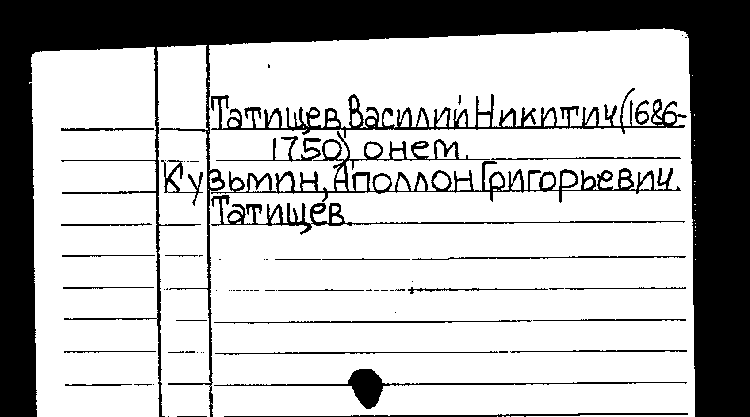 Татищев, Василий Никитич (1686-
1750) о нем.
Кузьмин, Аполлон Григорьевич.
Татищев.